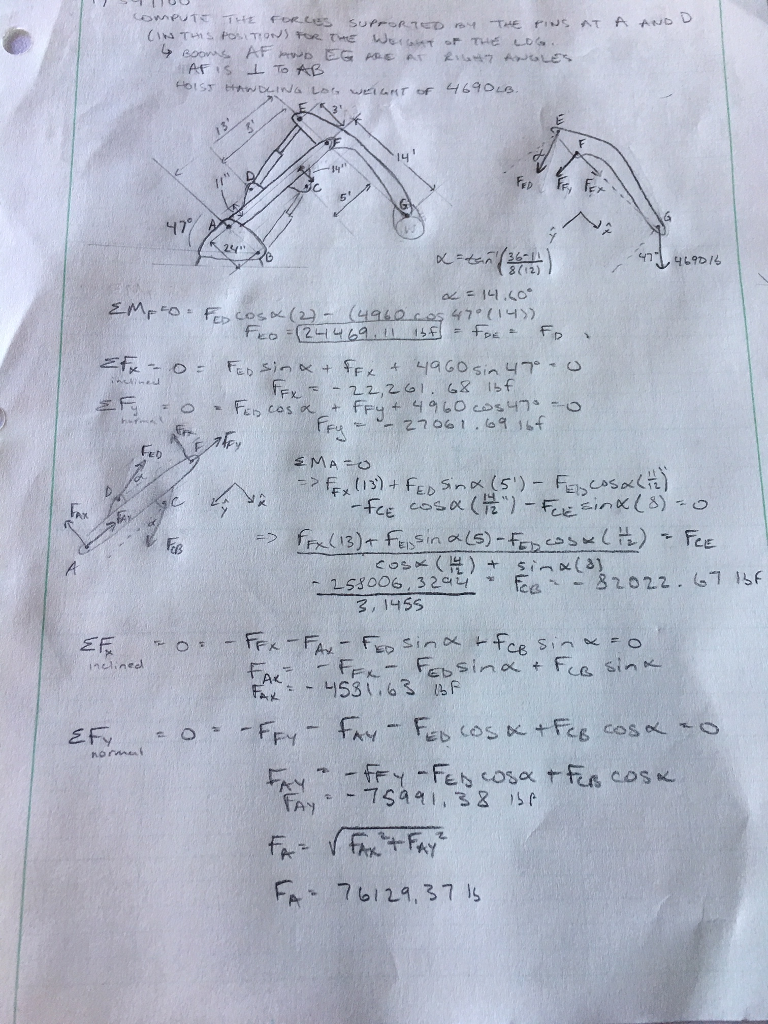 COMPUTE THE FORCES SUPPORTED BY THE PINS AT A AND D
(IN THIS POSITION) FOR THE WEIGHT OF THE LOG.
↳ BOOMS AF AND EG ARE AT RIGHT ANGLES
AF IS ⊥ TO AB
HOIST HANDLING LOG WEIGHT OF 4690LB.
E 3'
13' 8' F 14'
14"
11" D C 5'
47° A G
24" B
E
F
α
FED FFy FFx
G
ŷ x̂
47° 4690lb
α = tan⁻¹(36-11/8(12))
α = 14.60°
ΣMF=0 = FED cosα(2) - (4960 cos 47°(14))
FED = 24469.11 lbf = FDE = FD
ΣFx = 0 = FED sinα + FFx + 4960 sin 47° = 0
inclined
FFx = -22,261.68 lbf
ΣFy = 0 = FED cosα + FFy + 4960 cos47° = 0
normal
FFy = -27061.69 lbf
FFx
FED F FFy
D α
C
FAx FAy α
FCB
A
ŷ x̂
ΣMA=0
=> FFx(13) + FED sinα(5') - FED cosα(11/12)
-FCE cosα(14/12") - FCE sinα(8) = 0
=> FFx(13) + FED sinα(5) - FED cosα(11/12) / cosα(14/12) + sinα(8) = FCE
-258006.3294 / 3.1455 = FCB = -82022.67 lbf
ΣFx = 0 = -FFx - FAx - FED sinα + FCB sinα = 0
inclined
FAx = -FFx - FED sinα + FCB sinα
FAx = -4531.63 lbf
ΣFy = 0 = -FFy - FAy - FED cosα + FCB cosα = 0
normal
FAy = -FFy - FED cosα + FCB cosα
FAy = -75991.38 lbf
FA = √FAx²+FAy²
FA = 76129.37 lb